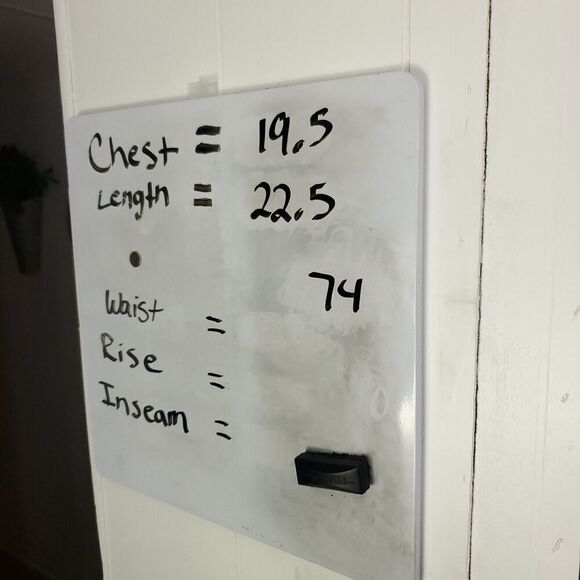 Chest = 19.5
Length = 22.5
74
Waist =
Rise =
Inseam =